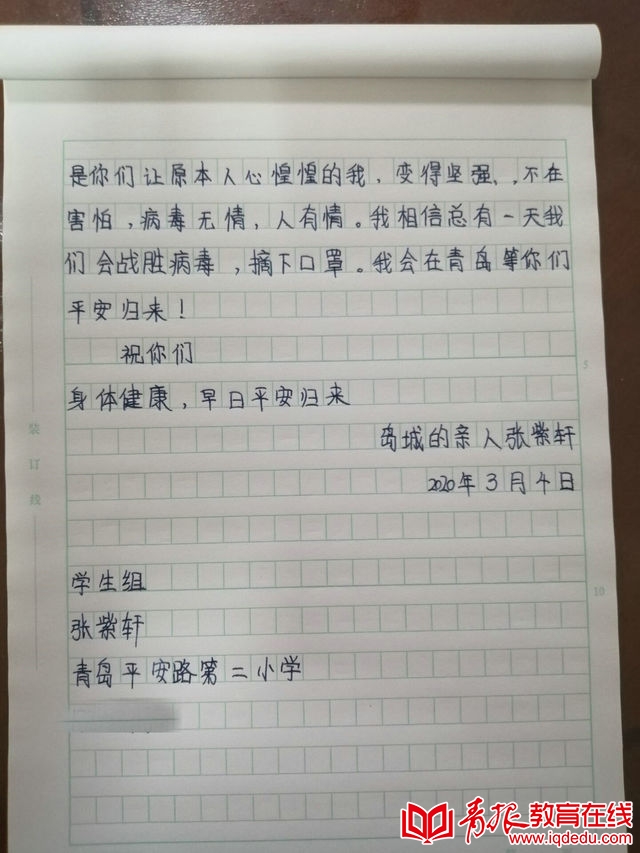 是你们让原本人心惶惶的我，变得坚强、，不在
害怕，病毒无情，人有情。我相信总有一天我
们会战胜病毒，摘下口罩。我会在青岛等你们
平安归来！
祝你们
身体健康，早日平安归来
岛城的亲人张紫轩
2020年3月4日
学生组
张紫轩
青岛平安路第二小学
装订线
5
10
青报教育在线
www.iqdedu.com